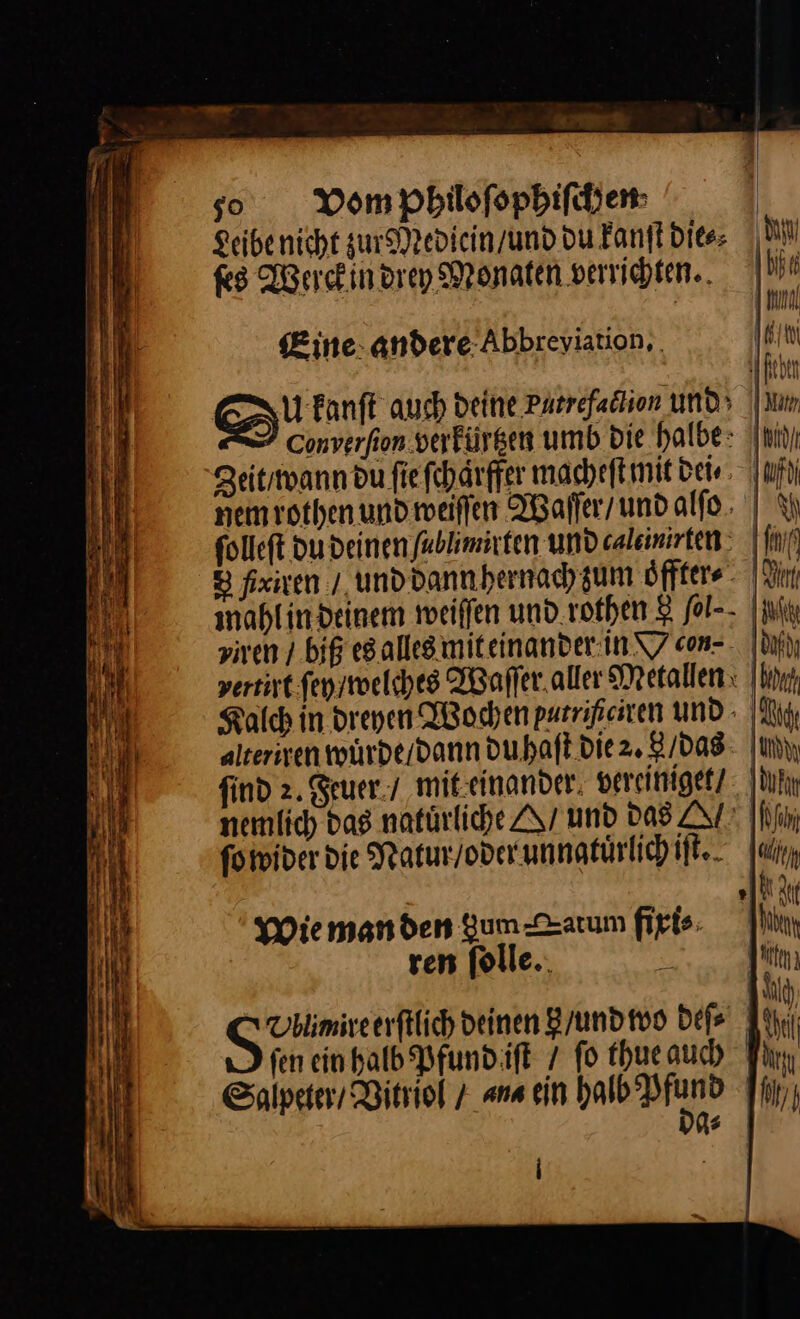 50 Vom philoſophiſchen
Leibe nicht zur Medicin/und du kanſt die⸗
ſes Werck in drey Monaten verrichten.
Eine andere Abbreviation,
DU kanſt auch deine Putrefaction und
Converſion verkürtzen umb die halbe
Zeit/wann du ſie ſchaͤrffer macheſt mit dei⸗
nem rothen und weiſſen Waſſer/ und alſo
ſolleſt du deinen ſublimirten und calcinirten
☿ fixiren / und dann hernach zum oͤffter⸗
mahl in deinem weiſſen und rothen ☿ ſol-
viren / biß es alles mit einander in 🜄 con-
vertirt ſey/welches Waſſer aller Metallen
Kalch in dreyen Wochen putrificiren und
alteriren wuͤrde/dann du haſt die 2. ☿/das
ſind 2. Feuer / mit einander vereiniget/
nemlich das natuͤrliche 🜂/ und das 🜂/
ſo wider die Natur/oder unnatuͤrlich iſt.
Wie man den ☿um ♎atum fixi⸗
ren ſolle.
SUblimire erſtlich deinen ☿/und wo deſ⸗
ſen ein halb Pfund iſt / ſo thue auch
Salpeter/ Vitriol / ana ein halb Pfund
da⸗